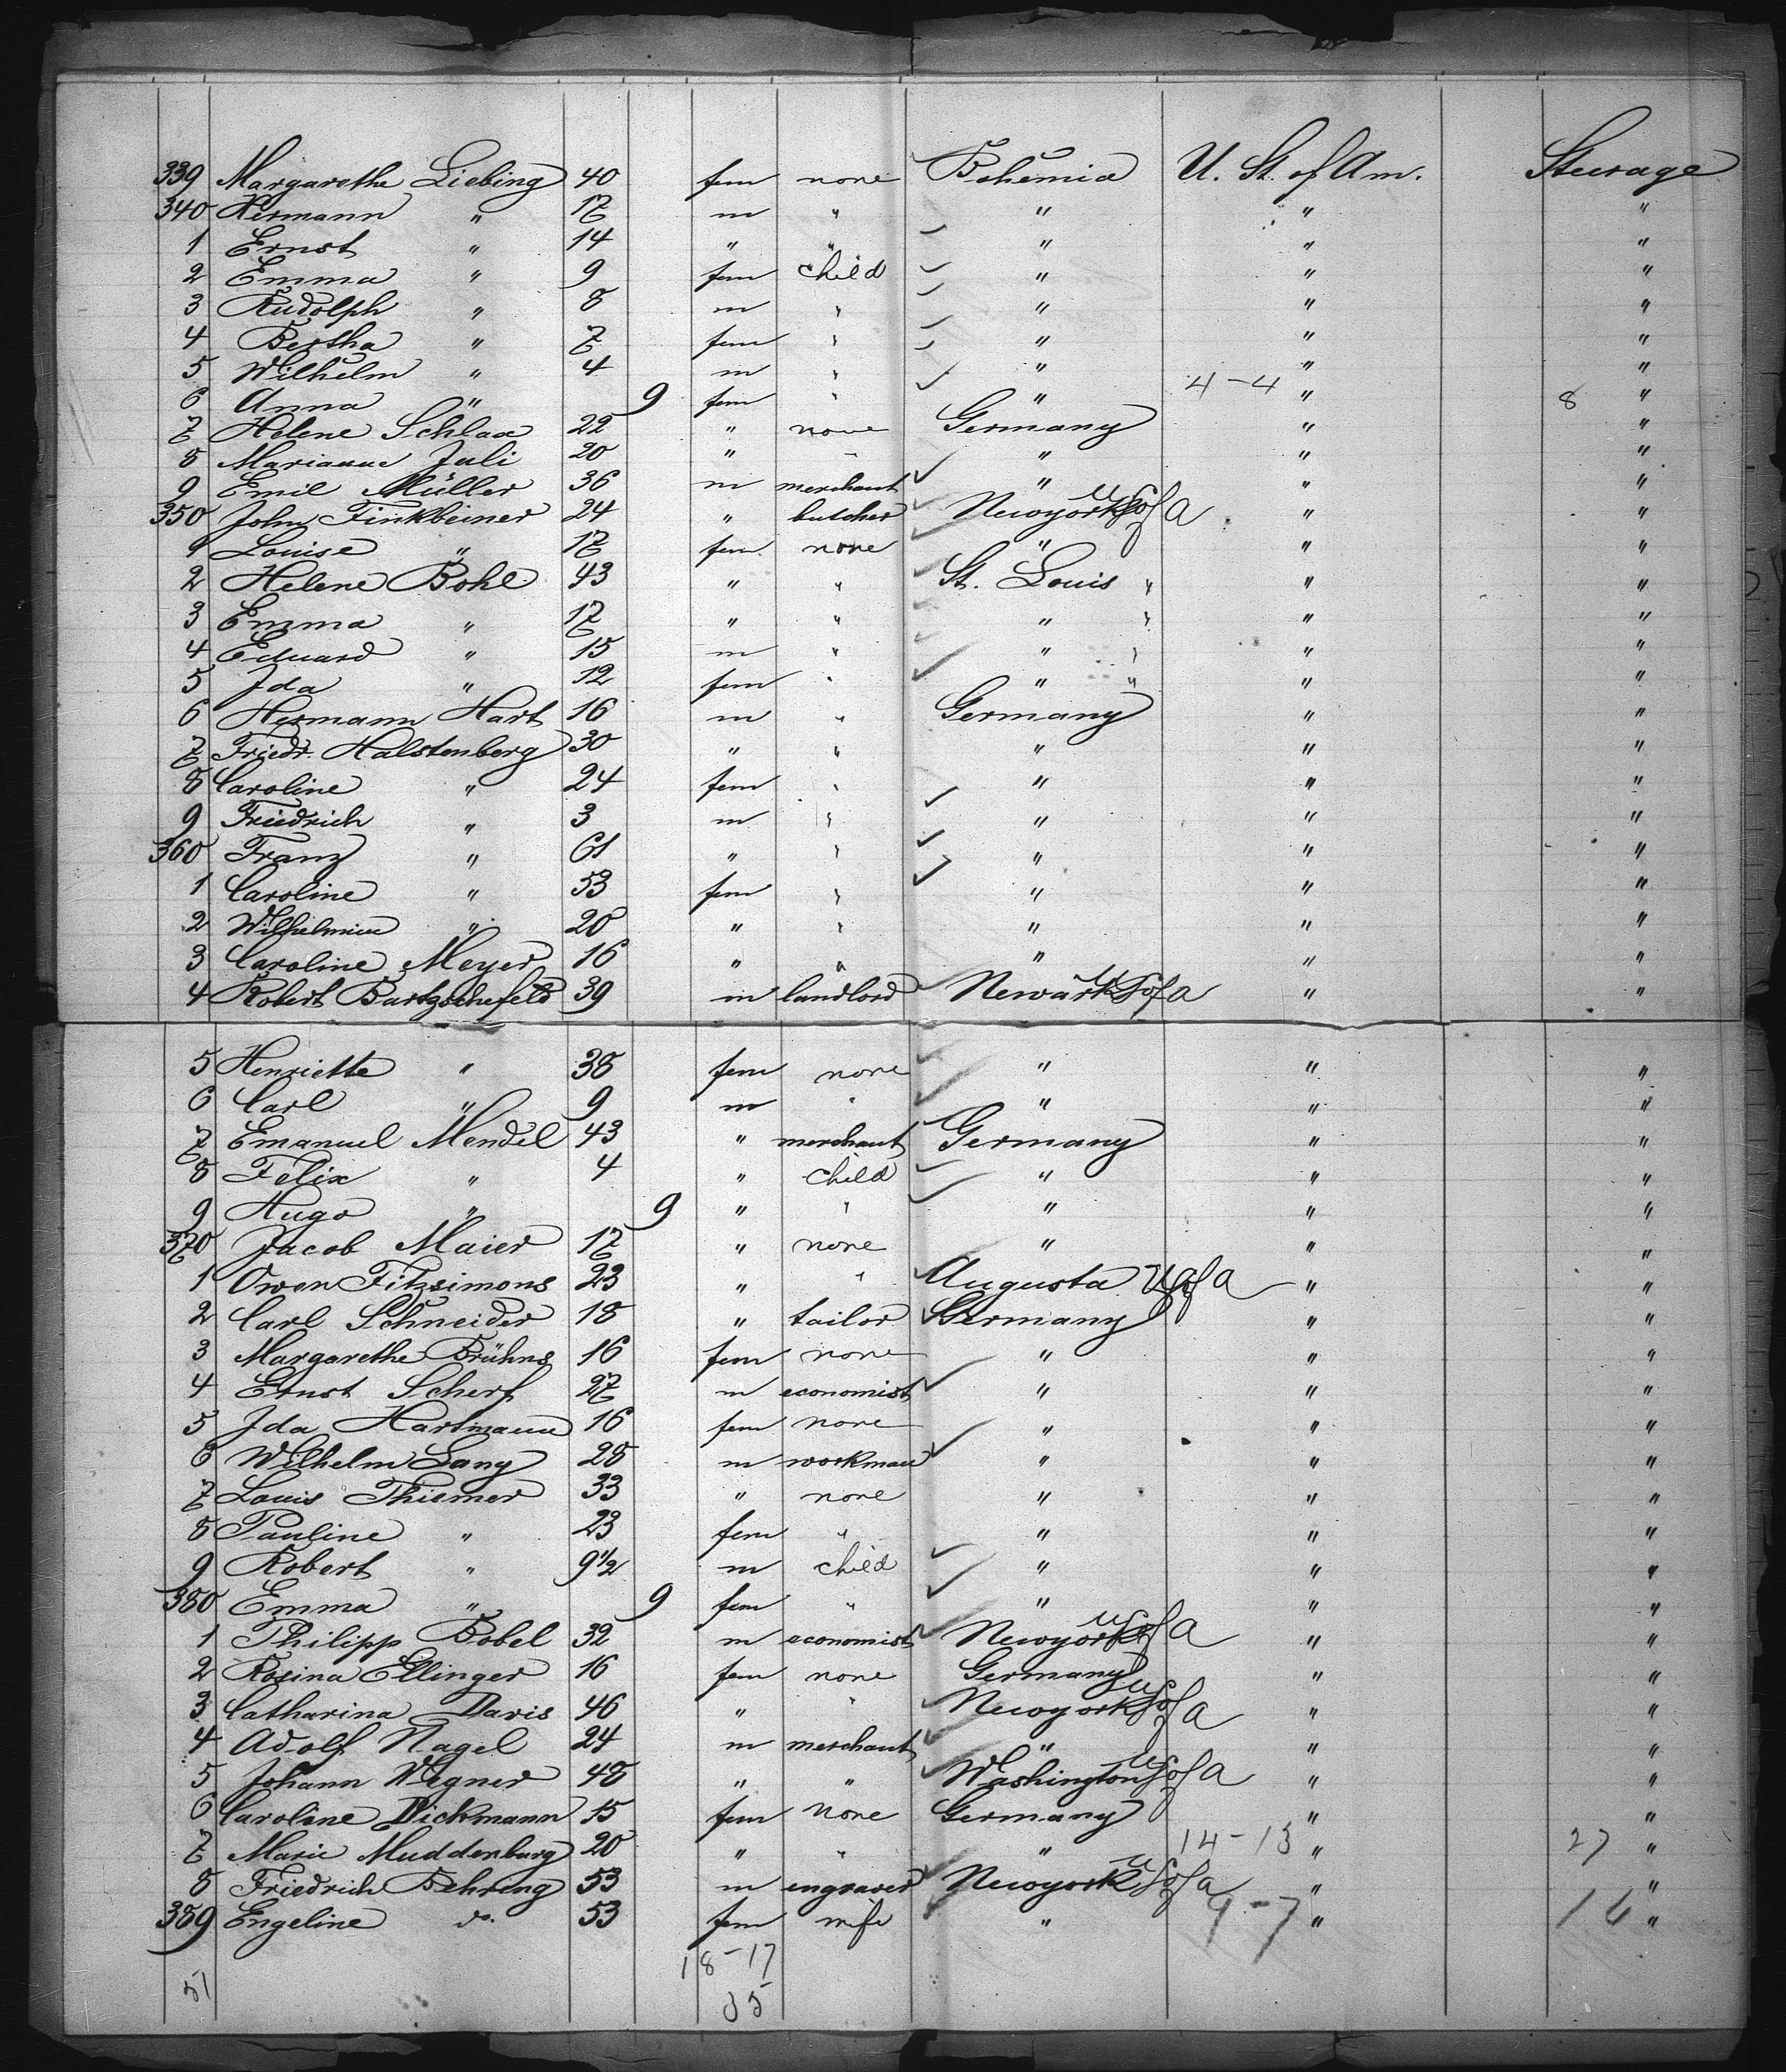 339 Margarethe Liebing 40 fem none Bohemia U. St. of Am. Steerage
340 Hermann " 17 m " " " "
1 Ernst " 14 " " " " "
2 Emma " 9 fem child " " "
3 Rudolph " 8 m " " " "
4 Bertha " 7 fem " " " "
5 Wilhelm " 4 m " " " "
6 Anna " 9 fem " " 4-4 " 8 "
7 Helene Schlax 22 " none Germany " "
8 Marianne Juli 20 " " " " "
9 Emil Müller 36 m merchant " " "
350 John Finkbeiner 24 " butcher Newyork U S of A " "
1 Louise " 17 fem none " " "
2 Helene Bohl 43 " " St. Louis " " "
3 Emma " 17 " " " " " "
4 Eduard " 15 m " " " " "
5 Ida " 12 fem " " " " "
6 Hermann Hart 16 m " Germany " "
7 Friedr. Halstenberg 30 " " " " "
8 Caroline " 24 fem " " " "
9 Friedrich " 3 m " " " "
360 Franz " 61 " " " " "
1 Caroline " 53 fem " " " "
2 Wilhelmine " 20 " " " " "
3 Caroline Meyer 16 " " " " "
4 Robert Bartzschefeld 39 m landlord Newark U S of A " "
5 Henriette " 38 fem none " " "
6 Carl " 9 m " " " "
7 Emanuel Mendel 43 " merchant Germany " "
8 Felix " 4 " child " " "
9 Hugo " 9 " " " " "
370 Jacob Maier 17 " none " " "
1 Owen Fitzsimons 23 " " Augusta U S of A " "
2 Carl Schneider 18 " tailor Germany " "
3 Margarethe Brühns 16 fem none " " "
4 Ernst Scherf 27 m economist " " "
5 Ida Hartmann 16 fem none " " "
6 Wilhelm Lang 28 m workman " " "
7 Louis Thiemer 33 " none " " "
8 Pauline " 23 fem " " " "
9 Robert " 9 1/2 m child " " "
380 Emma " 9 fem " " " "
1 Philipp Bobel 32 m economist Newyork U S of A " "
2 Rosina Ellinger 16 fem none Germany " "
3 Catharina Davis 46 " " Newyork U S of A " "
4 Adolf Nagel 24 m merchant " " "
5 Johann Wegner 48 " " Washington U S of A " "
6 Caroline Dickmann 15 fem none Germany " "
7 Marie Muddenburg 20 " " " 14-13 " 27 "
8 Friedrich Behring 53 m engraver Newyork U S of A " "
389 Engeline do. 53 fem wife " 9-7 " 16 "
18-17
51 35